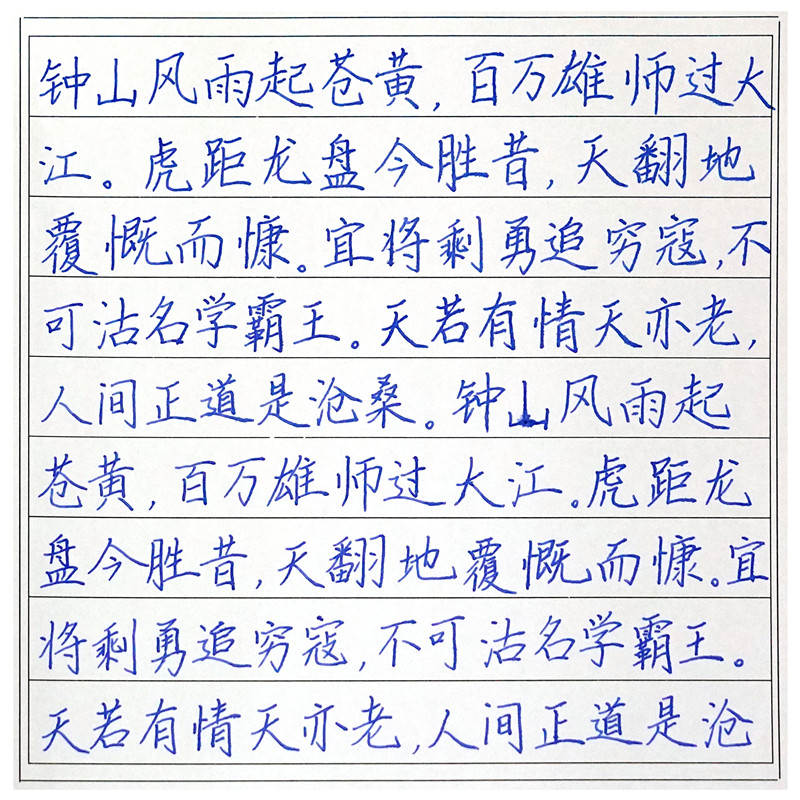 钟山风雨起苍黄,百万雄师过大
江。虎距龙盘今胜昔,天翻地
覆慨而慷。宜将剩勇追穷寇,不
可沽名学霸王。天若有情天亦老,
人间正道是沧桑。钟山风雨起
苍黄,百万雄师过大江。虎距龙
盘今胜昔,天翻地覆慨而慷。宜
将剩勇追穷寇,不可沽名学霸王。
天若有情天亦老,人间正道是沧